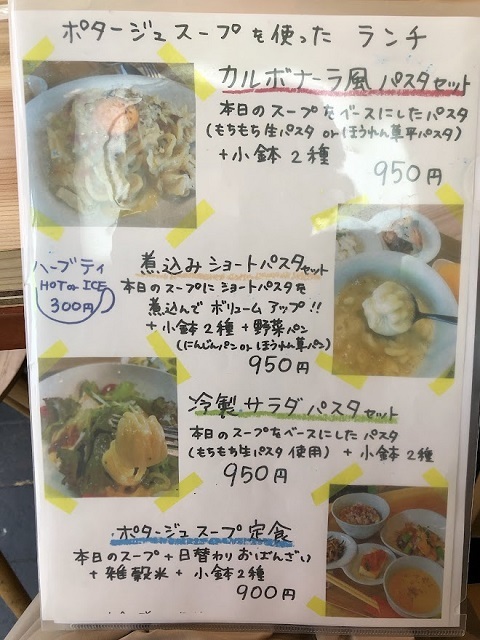 ポタージュスープを使った ランチ
カルボナーラ風パスタセット
本日のスープをベースにしたパスタ
(もちもち生パスタ orほうれん草平パスタ)
+小鉢2種
950円
煮込みショートパスタセット
本日のスープにショートパスタを
煮込んで ボリュームアップ!!
+小鉢2種+野菜パン
(にんじんパンorほうれん草パン)
950円
ハーブティ
HOT or ICE
300円
冷製サラダパスタセット
本日のスープをベースにしたパスタ
(もちもち生パスタ使用) +小鉢2種
950円
ポタージュスープ定食
本日のスープ+日替わりおばんざい
+雑穀米+小鉢2種
900円